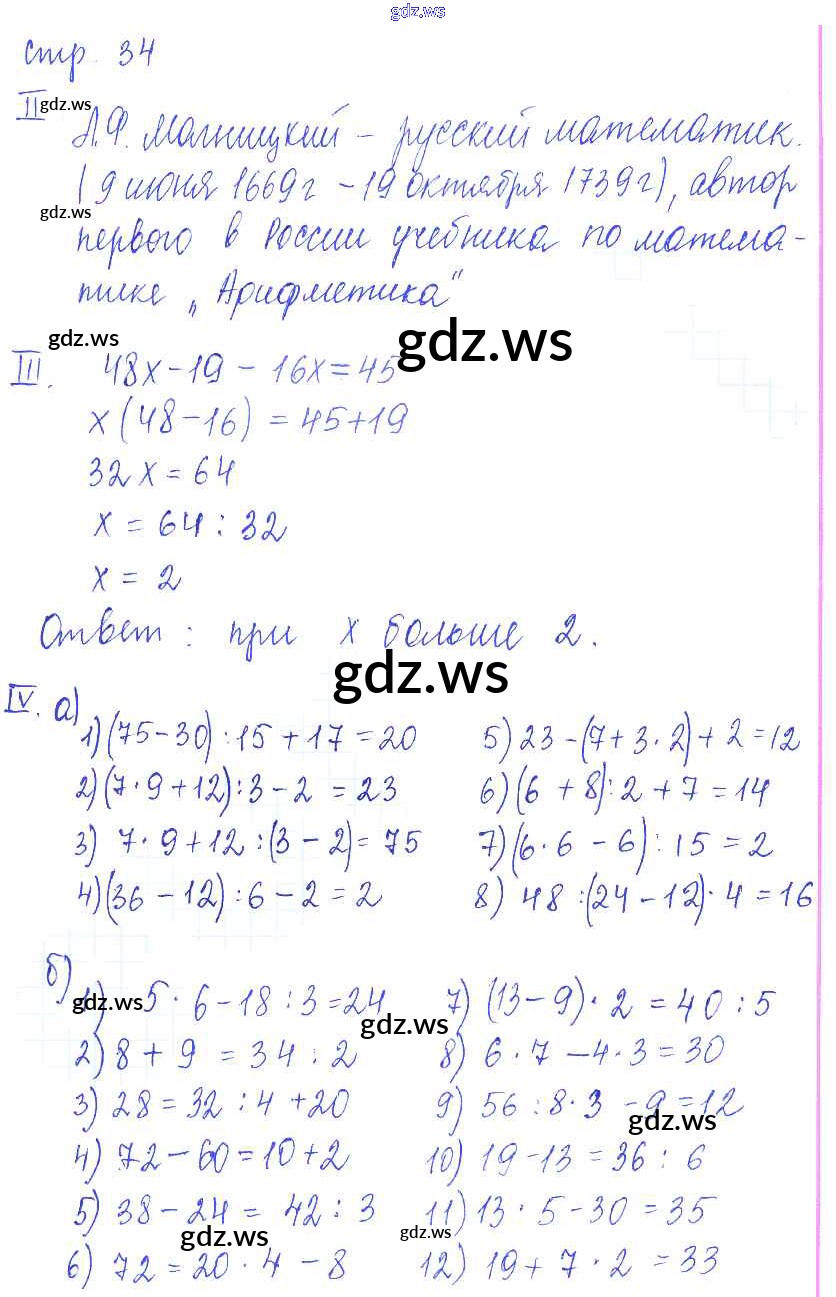 gdz.ws
стр. 34
II gdz.ws
Л.Ф. Магницкий - русский математик.
(9 июня 1669г - 19 октября 1739г), автор
gdz.ws
первого в России учебника по матема-
тике „Арифметика“
gdz.ws
gdz.ws
III. 48x - 19 - 16x = 45
x(48 - 16) = 45 + 19
32x = 64
x = 64 : 32
x = 2
Ответ: при x больше 2.
gdz.ws
IV. а)
1) (75 - 30) : 15 + 17 = 20
2) (7 · 9 + 12) : 3 - 2 = 23
3) 7 · 9 + 12 : (3 - 2) = 75
4) (36 - 12) : 6 - 2 = 2
5) 23 - (7 + 3 · 2) + 2 = 12
6) (6 + 8) : 2 + 7 = 14
7) (6 · 6 - 6) : 15 = 2
8) 48 : (24 - 12) · 4 = 16
б)
gdz.ws
1) 5 · 6 - 18 : 3 = 24
gdz.ws
2) 8 + 9 = 34 : 2
3) 28 = 32 : 4 + 20
4) 72 - 60 = 10 + 2
5) 38 - 24 = 42 : 3
gdz.ws
6) 72 = 20 · 4 - 8
7) (13 - 9) · 2 = 40 : 5
8) 6 · 7 - 4 · 3 = 30
9) 56 : 8 · 3 - 9 = 12
gdz.ws
10) 19 - 13 = 36 : 6
11) 13 · 5 - 30 = 35
gdz.ws
12) 19 + 7 · 2 = 33